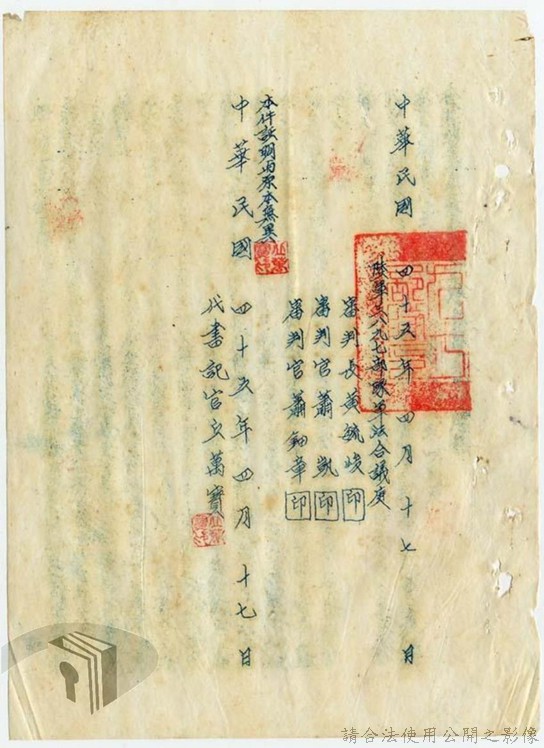 中華民國四十五年四月十七日
陸軍六八九七部隊軍法合議庭
審判長黃毓峻印
審判官蕭凱印
審判官蕭鈿章印
本件證明與原本無異
中華民國四十五年四月十七日
代書記官文萬寶
請合法使用公開之影像